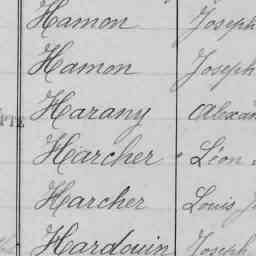 Hamon Joseph
Hamon Joseph
Harany Alexan
Harcher Léon
Harcher Louis J
Hardouin Joseph